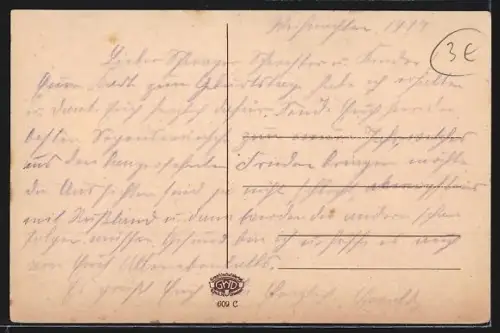 Weihnachten 1917
3€
Lieber Schwager Schwester u. Kinder
Eure Karte zum Geburtstage habe ich erhalten
u. danke Euch herzlich dafür. Sende Euch hier die
besten Segenswünsche zum neuen Jahr, welches
uns den langersehnten Frieden bringen möchte
die Aussichten sind ja nicht schlecht
mit Rußland u. dann werden die andern schon
folgen müssen Gesund bin ich u. hoffe es auch
von Euch
Es grüßt Euch
GWD
609 C